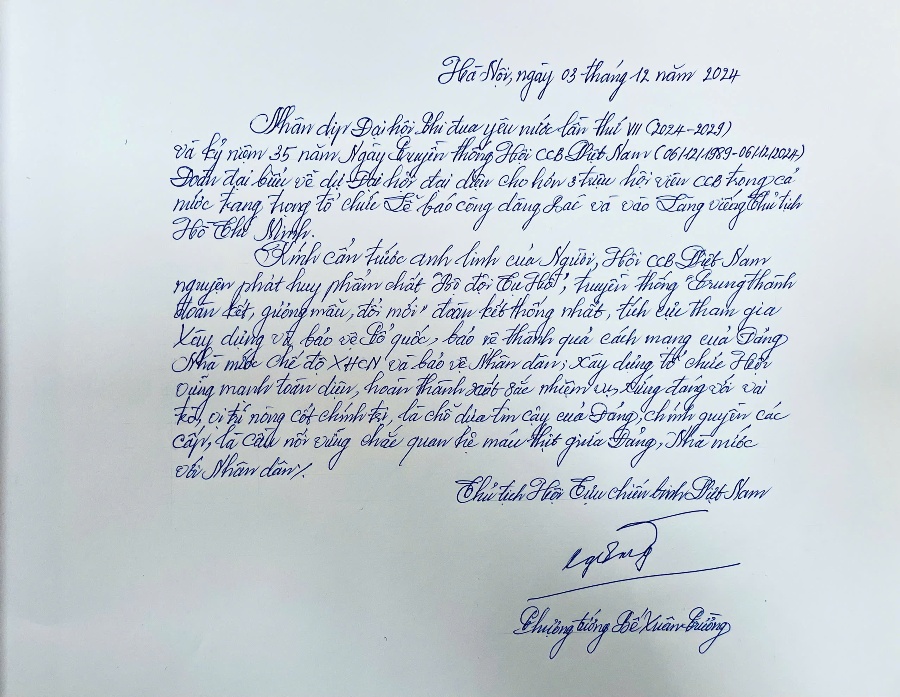 Hà Nội, ngày 03 tháng 12 năm 2024
Nhân dịp Đại hội Thi đua yêu nước lần thứ VII (2024-2029)
và kỷ niệm 35 năm Ngày Truyền thống Hội CCB Việt Nam (06/12/1989-06/12/2024)
Đoàn đại biểu về dự Đại hội đại diện cho hơn 3 triệu hội viên CCB trong cả
nước trang trọng tổ chức Lễ báo công dâng Bác và vào Lăng viếng Chủ tịch
Hồ Chí Minh.
Kính cẩn trước anh linh của Người, Hội CCB Việt Nam
nguyện phát huy phẩm chất "Bộ đội Cụ Hồ", truyền thống "Trung thành
đoàn kết, gương mẫu, đổi mới" đoàn kết thống nhất, tích cực tham gia
Xây dựng và bảo vệ Tổ quốc, bảo vệ thành quả cách mạng của Đảng
Nhà nước chế độ XHCN và bảo vệ Nhân dân; xây dựng tổ chức Hội
vững mạnh toàn diện, hoàn thành xuất sắc nhiệm vụ, xứng đáng với vai
trò, vị trí nòng cốt chính trị, là chỗ dựa tin cậy của Đảng, chính quyền các
cấp, là cầu nối vững chắc quan hệ máu thịt giữa Đảng, Nhà nước
với Nhân dân./.
Chủ tịch Hội Cựu chiến binh Việt Nam
Thượng tướng Bế Xuân Trường